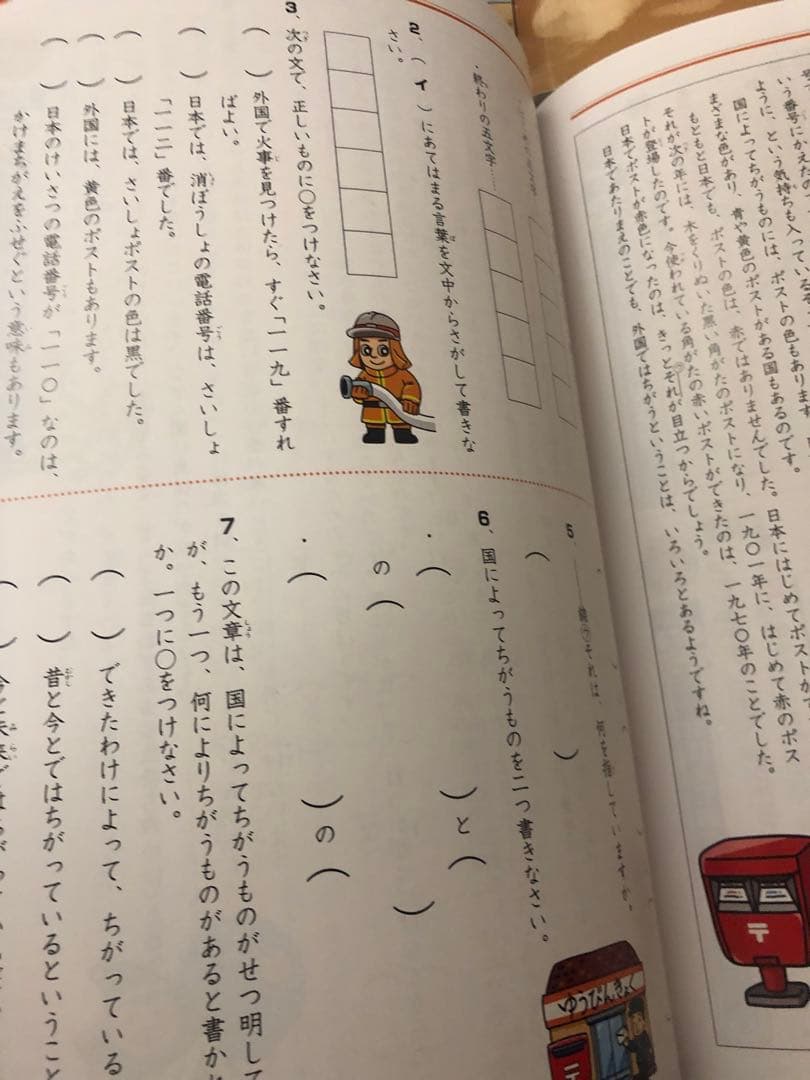 いう番号にかえた
ように、という気持ちも入っている
国によってちがうものには、ポストの色もあります。
まざまな色があり、青や黄色のポストがある国もあるのです。
もともと日本でも、ポストの色は、赤ではありませんでした。日本にはじめてポストがで
それが次の年には、木をくりぬいた黒い角がたのポストになり、一九〇一年に、はじめて赤のポス
トが登場したのです。今使われている角がたの赤いポストができたのは、一九七〇年のことでした。
日本でポストが赤色になったのは、きっとそれが目立つからでしょう。
日本であたりまえのことでも、外国ではちがうということは、いろいろとあるようですね。
〒
・終わりの五文字……
2、（ イ ）にあてはまる言葉を文中からさがして書きな
さい。
3、次の文で、正しいものに〇をつけなさい。
（　）外国で火事を見つけたら、すぐ「一一九」番すれ
ばよい。
（　）日本では、消ぼうしょの電話番号は、さいしょ
「一一二」番でした。
（　）日本では、さいしょポストの色は黒でした。
（　）外国には、黄色のポストもあります。
（　）日本のけいさつの電話番号が「一一〇」なのは、
かけまちがえをふせぐという意味もあります。
5、――線㋒それは、何を指していますか。
（　）
6、国によってちがうものを二つ書きなさい。
・（　）と（　）
の（　）
・（　）の（　）
ゆうびんきょく
7、この文章は、国によってちがうものがせつ明して
が、もう一つ、何によりちがうものがあると書か
か。一つに〇をつけなさい。
（　）できたわけによって、ちがっている
（　）昔と今とではちがっているということ